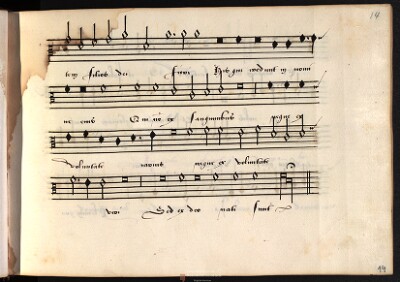 14
tem filios dei fieri his qui credunt in nomi
ne eius Qui no ex sanguinibus neque ex
voluntate carnis neque ex voluntate
viri Sed ex deo nati sunt